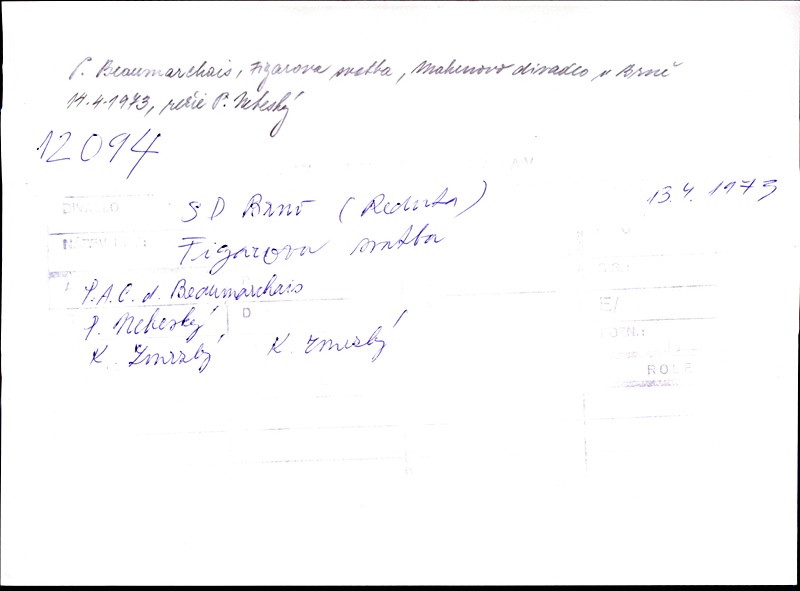 P. Beaumarchais, Figarova svatba, Mahenovo divadlo v Brně
14.4.1973, režie P. Nebeský
12094
DIVADLO
SD Brno (Reduta) 13.4.1973
Figarova svatba
P.A.C. d. Beaumarchais
P. Nebeský
D
K. Zmrzlý K. Zmrzlý
ROLE